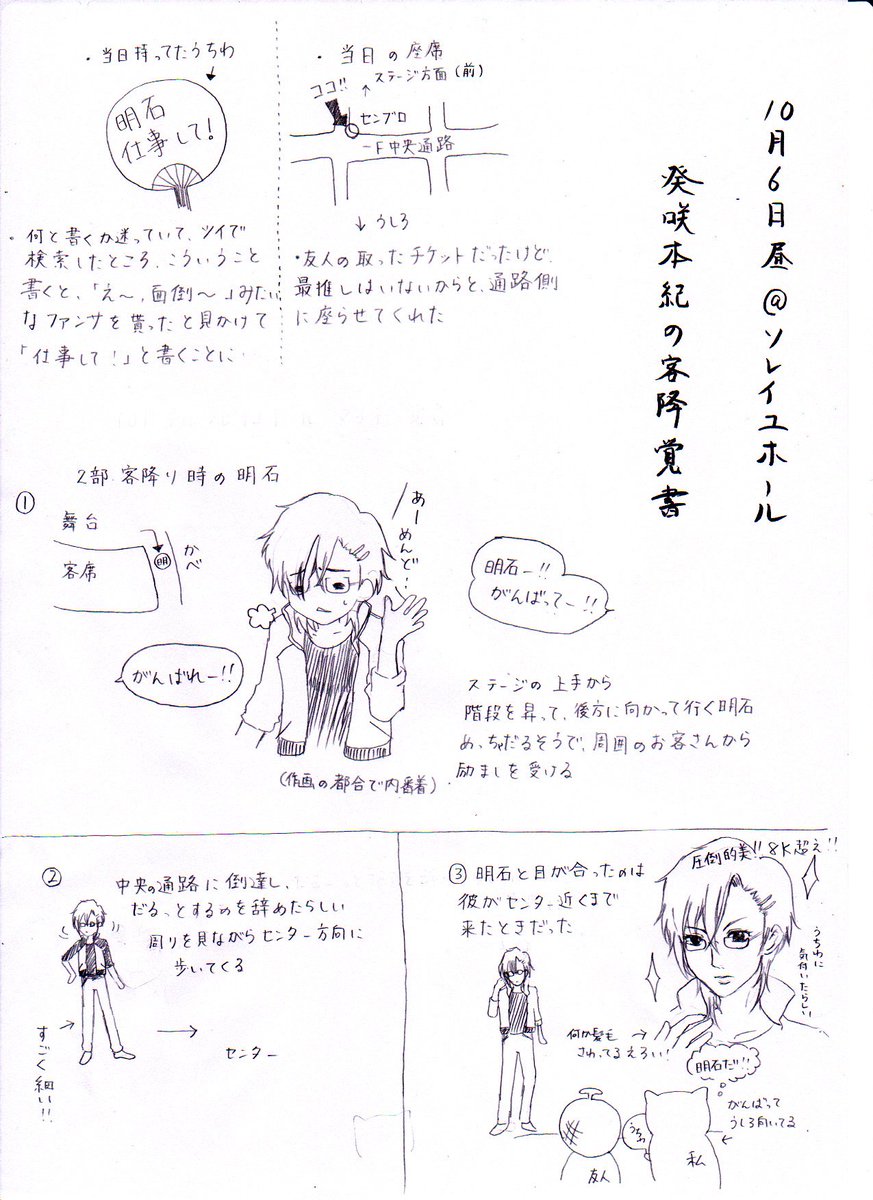 10月6日昼@ソレイユホール
葵咲本紀の客降覚書
・当日持ってたうちわ
明石
仕事して!
・何と書くか迷っていて、ツイで
検索したところ、こういうこと
書くと、「え〜、面倒〜」みたい
なファンサを貰ったと見かけて
「仕事して!」と書くことに
・当日の座席
ステージ方面(前)
ココ!!
センブロ
一F中央通路
うしろ
・友人の取ったチケットだったけど、
最推しはいないからと、通路側
に座らせてくれた
2部 客降り時の明石
①
舞台
客席
明
かべ
あーめんど…
明石ー!!
がんばってー!!
がんばれー!!
(作画の都合で内番着)
ステージの上手から
階段を昇って、後方に向かって行く明石
めっちゃだるそうで、周囲のお客さんから
励ましを受ける
②
中央の通路に到達し、
だるっとするのを辞めたらしい
周りを見ながらセンター方向に
歩いてくる
すごく細い!!
センター
③明石と目が合ったのは
彼がセンター近くまで
来たときだった
圧倒的美!!8K超え!!
うちわに
気付いたらしい
何か髪毛
さわってるえろい!
明石だ!!
がんばって
うしろ向いてる
うちわ
友人
私